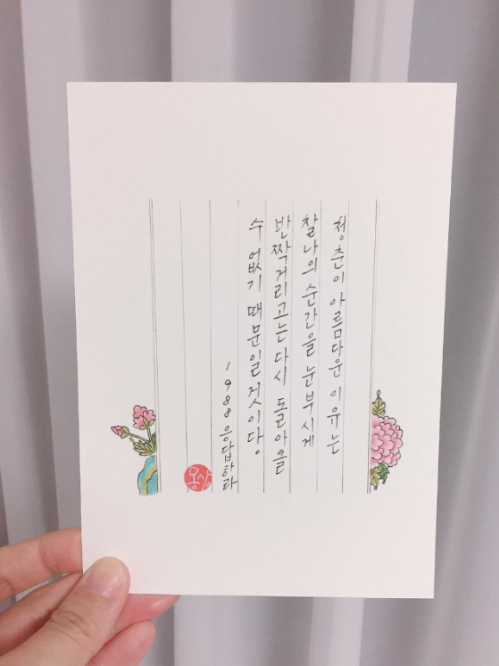 청춘이 아름다운 이유는
찰나의 순간을 눈부시게
반짝거리고는 다시 돌아올
수 없기 때문일 것이다.
1988 응답하라